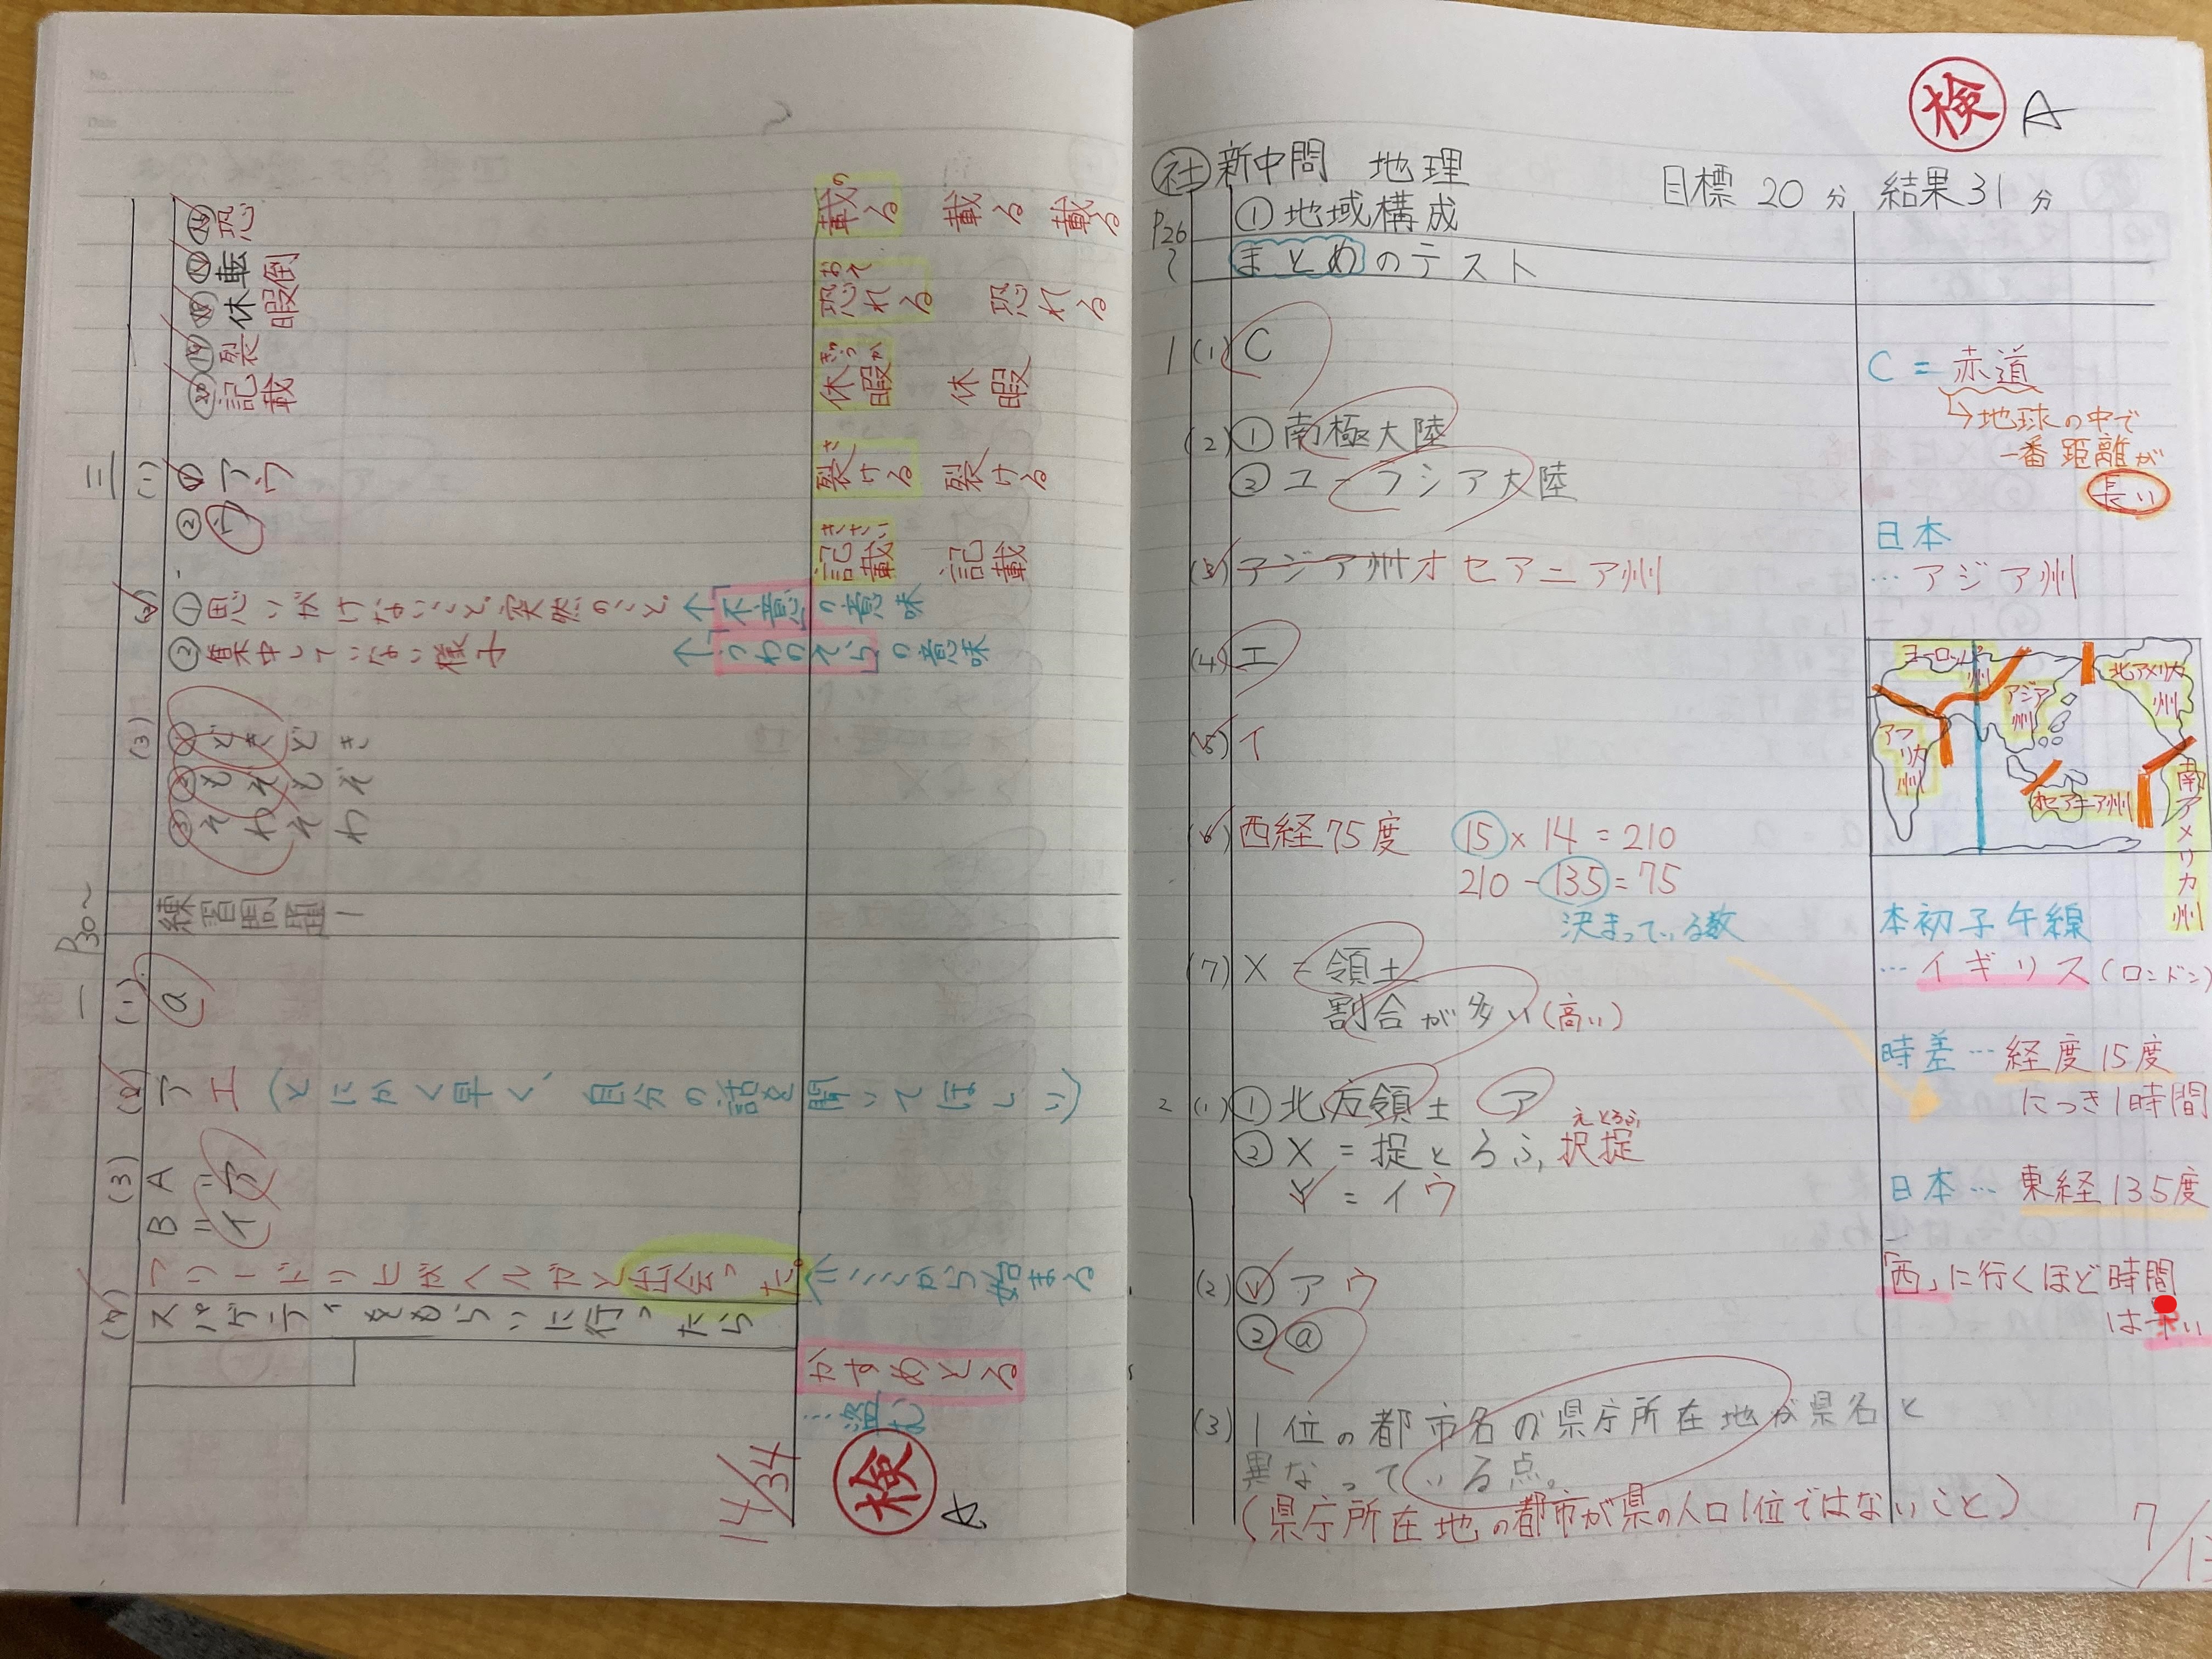 No.
Date
⑯恐
⑰転倒
⑱休暇
⑲裂
⑳記載
載る 載る 載る
の
恐れる 恐れる
おそ
休暇 休暇
きゅうか
裂ける 裂ける
さ
記載 記載
きさい
三
(1)
① アウ
② ウ
(2) ①思いがけないこと、突然のこと ↑「不意」の意味
②集中していない様子 ↑「うわのそら」の意味
(3)
① どきどき
② もぞもぞ
③ そわそわ
P30~
練習問題1
一
(1) a
(2) アエ (とにかく早く、自分の話を聞いてほしい)
(3) A = ア
B = イ
(4) フリードリヒがヘルガと出会った。 ここから始まる
スパゲティをもらいに行ったら
かすめとる
…盗む
14/34
検 A
検 A
社 新中問 地理 目標 20分 結果31分
P26~
①地域構成
まとめのテスト
1 (1) C
(2) ①南極大陸
②ユーラシア大陸
(3) アジア州オセアニア州
(4) エ
(5) イ
(6) 西経75度 15×14=210
210-135=75
決まっている数
(7) X=領土
割合が多い(高い)
2 (1) ①北方領土 ア
②X=捉とろふ, 択捉
えとろふ
Y=イウ
(2) ① アウ
② a
(3) 1位の都市名の県庁所在地が県名と
異なっている点。
(県庁所在地の都市が県の人口1位ではないこと)
C = 赤道
→地球の中で
一番距離が
長い
日本
…アジア州
ヨーロッパ州
アジア州
北アメリカ州
アフリカ州
オセアニア州
南アメリカ州
本初子午線
…イギリス(ロンドン)
時差…経度15度
につき1時間
日本…東経135度
「西」に行くほど時間
は い
7/13